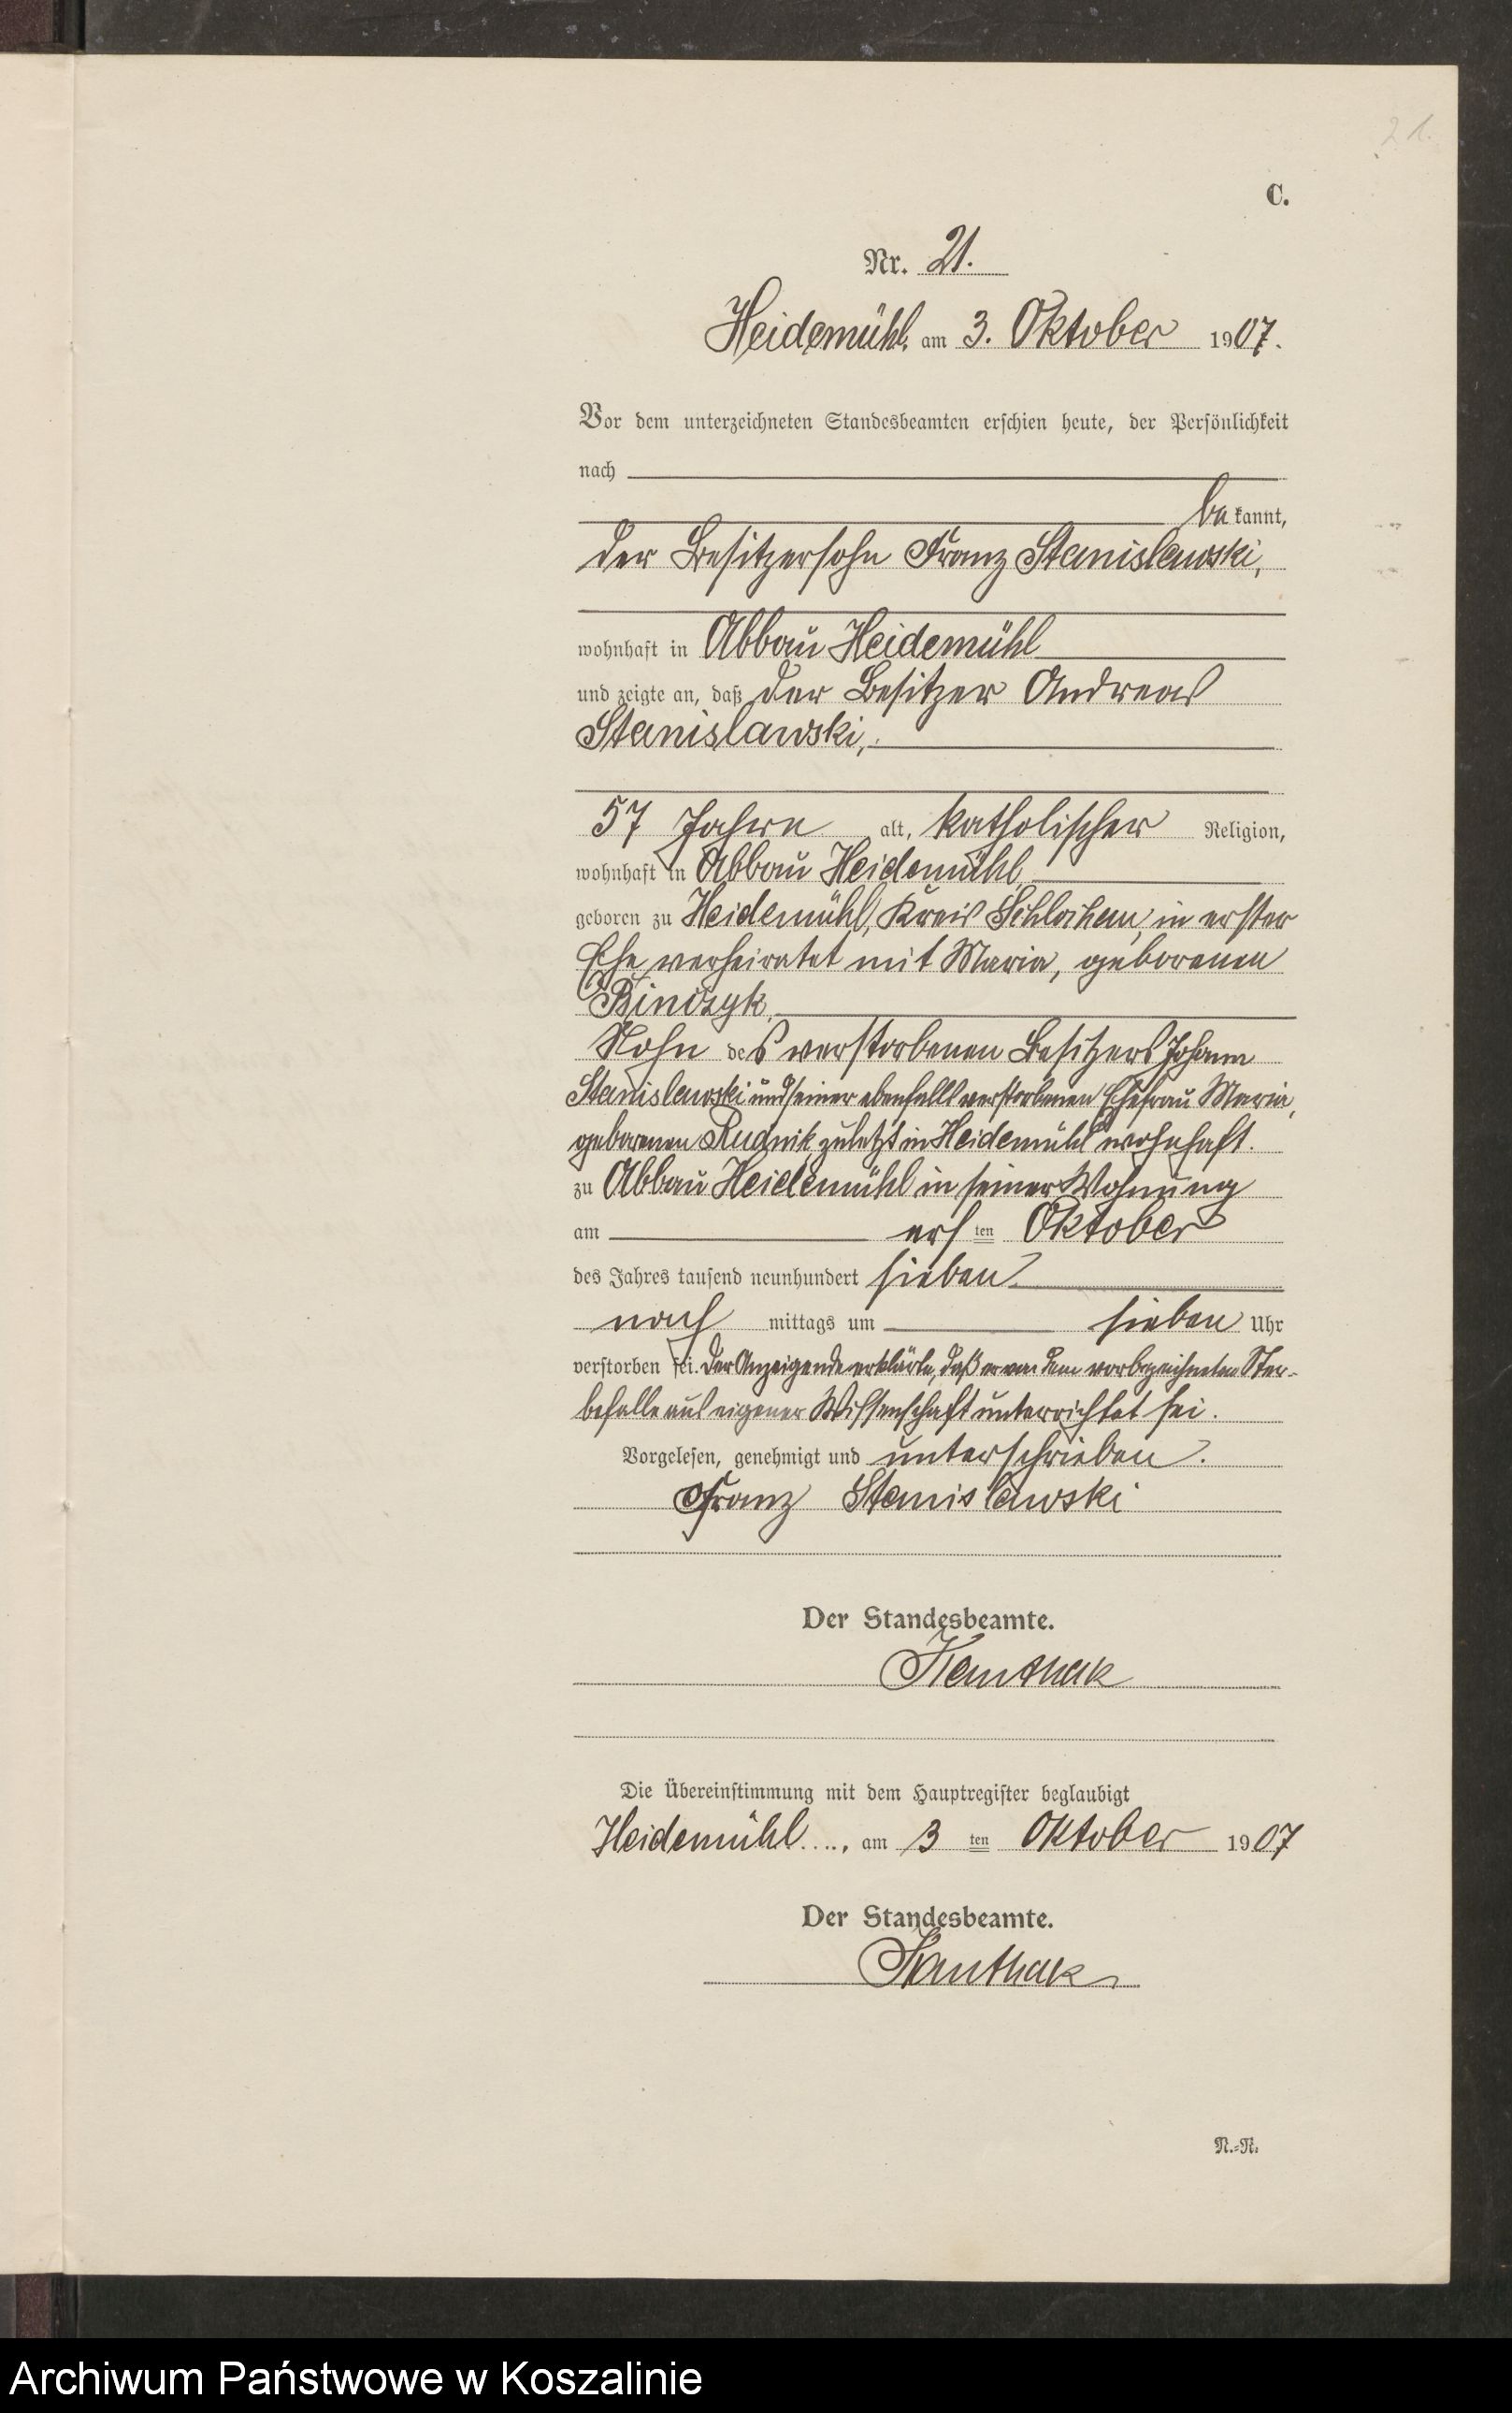 21.
C.
Nr. 21.
Heidemühl, am 3. Oktober 1907.
Vor dem unterzeichneten Standesbeamten erschien heute, der Persönlichkeit
nach
be kannt,
der Besitzersohn Franz Stanislawski,
wohnhaft in Abbau Heidemühl
und zeigte an, daß der Besitzer Andreas
Stanislawski,
57 Jahre alt, katholischer Religion,
wohnhaft in Abbau Heidemühl,
geboren zu Heidemühl, Kreis Schlochau, in erster
Ehe verheiratet mit Maria, geborenen
Binczyk,
Sohn des verstorbenen Besitzers Johann
Stanislawski und seiner ebenfalls verstorbenen Ehefrau Maria,
geborenen Rudnik, zuletzt in Heidemühl wohnhaft.
zu Abbau Heidemühl in seiner Wohnung
am ers ten Oktober
des Jahres tausend neunhundert sieben
nach mittags um sieben Uhr
verstorben sei. Der Anzeigende erklärte, daß er von dem vorbezeichneten Ster-
befalle aus eigener Wissenschaft unterrichtet sei.
Vorgelesen, genehmigt und unterschrieben.
Franz Stanislawski
Der Standesbeamte.
Die Übereinstimmung mit dem Hauptregister beglaubigt
Heidemühl, am 3 ten Oktober 1907
Der Standesbeamte.
N.-R.
Archiwum Państwowe w Koszalinie